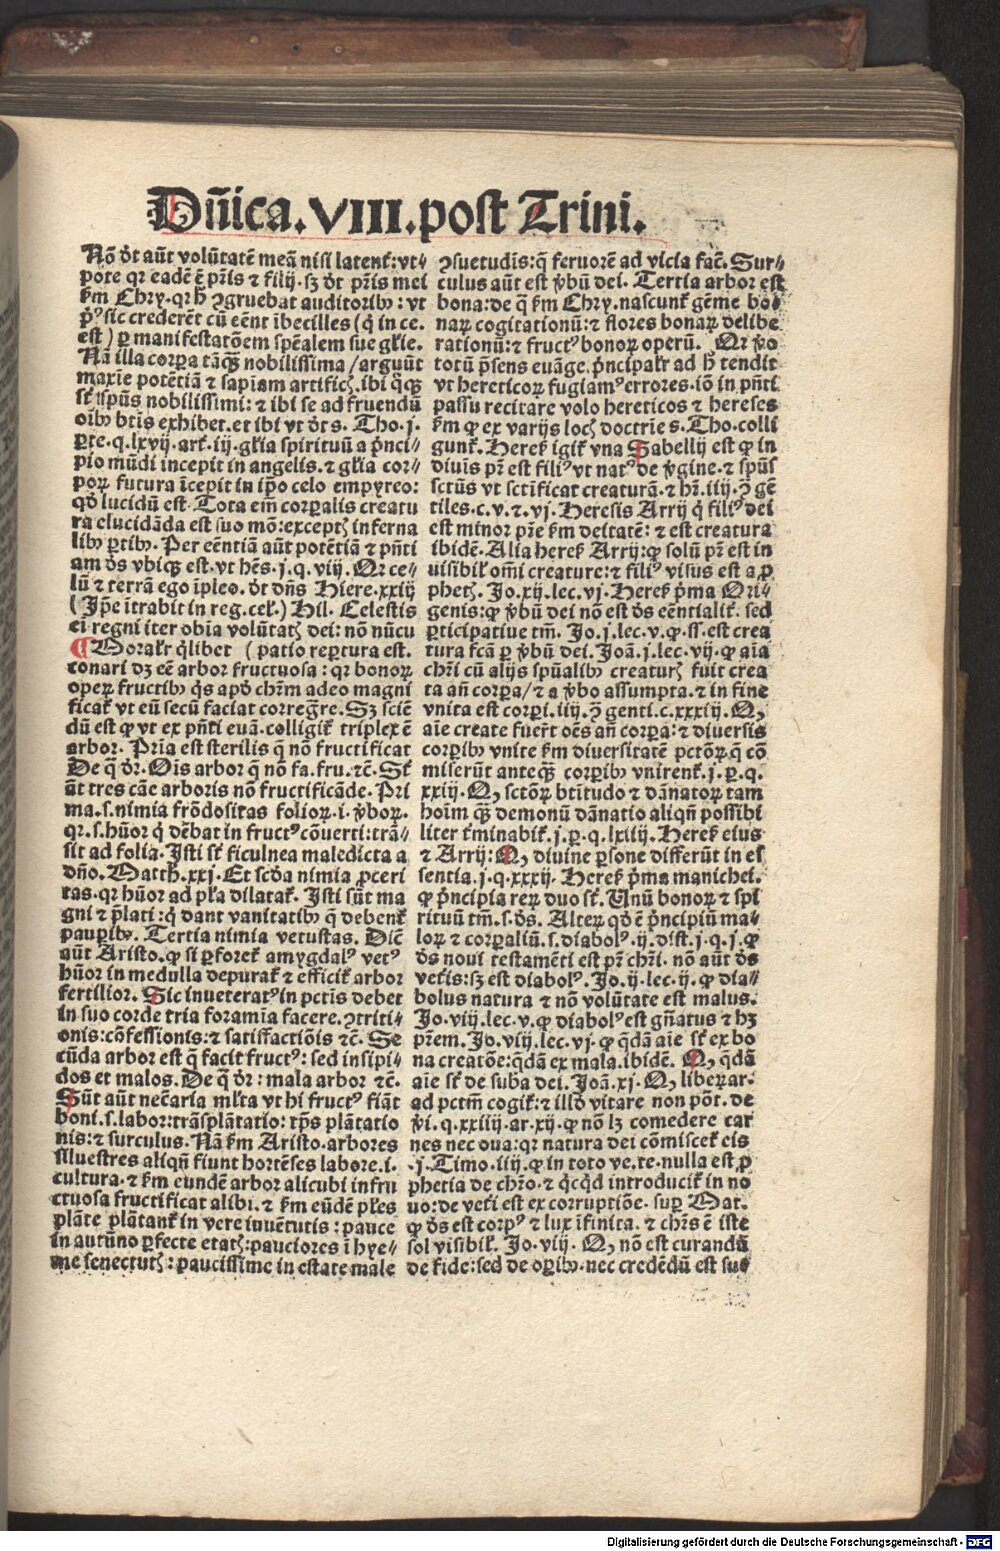 Dñica. VIII. post Trini.
Nō ðt aūt volūtatē meā nisi latenť: vt⸗
pote qr eadē ē pr̄is ⁊ filij. sꝫ ðt pr̄is mei
ẜm Chry. qr h̄ ꝯgruebat auditoribꝰ: vt
pꝰ sic crederēt cū eēnt ībecilles (q̇ in ce.
est) ꝑ manifestatōem spēalem sue glīe.
Nā illa corꝑa tāqꝫ nobilissima / arguūt
maxīe potētiā ⁊ sapiam artificꝭ. ibi q̇qꝫ
sť spūs nobilissimi: ⁊ ibi se ad fruendū
oībꝰ btīs exhibet. et ibi vt ðt s. Tho. j.
ꝑte. q. lxvij. arť. iij. glīa spirituū a ṗnci⸗
pio mūdi incepit in angelis. ⁊ glīa cor⸗
poꝝ futura īcepit in ip̄o celo empyreo:
qð lucidū est. Tota em̄ corꝑalis creatu
ra elucidāda est suo mō: exceptꝭ inferna
libꝰ ꝑtibꝰ. Per eēntiā aūt potētiā ⁊ pn̄ti
am ðs vbiqꝫ est. vt hēs. j. q. viij. Qr ce⸗
lū ⁊ terrā ego īpleo. ðt dn̄s Hiere. xxiij
(Ip̄e ītrabit in reg. ceł.) Hil. Celestis
ei regni iter obīa volūtatꝭ dei: nō nūcu
¶ Moralr̄ q̇libet (patio reꝑtura est.
conari dꝫ eē arbor fructuosa: qr bonoꝝ
opeꝝ fructibꝰ q̇s apð chr̄m adeo magni
ficať vt eū secū faciat corregr̄e. Sꝫ sciē
dū est ꝙ vt ex pn̄ti euā. colligiť triplex ē
arbor. Prīa est sterilis q̄ nō fructificat
De q̄ ðr. Oīs arbor q̄ nō fa. fru. ⁊c̄. Sť
āt tres cāe arboris nō fructificāde. Pri
ma. s. nimia frōdositas folioꝝ. i. v̄boꝝ.
qr. s. hūor q̇ dēbat in fructꝰ cōuerti: trā⸗
sit ad folia. Isti sť ficulnea maledicta a
dn̄o. Matth. xxj. Et scða nimia ꝓceri
tas. qr hūor ad pl̄a dilatať. Isti sūt ma
gni ⁊ p̄lati: q̇ dant vanitatibꝰ q̄ debenť
pauꝑibꝰ. Tertia nimia vetustas. Dic̄
aūt Aristo. ꝙ si ꝑforeť amygdalꝰ vetꝰ
hūor in medulla depurať ⁊ efficiť arbor
fertilior. Sic inueteratꝰ in pctīs debet
in suo corde tria foramīa facere. ꝯtriti⸗
onis: cōfessionis: ⁊ satisfactiōis ⁊c̄. Se
cūda arbor est q̄ facit fructꝰ: sed insipi⸗
dos et malos. De q̄ ðr: mala arbor ⁊c̄.
Sūt aūt nec̄aria ml̄ta vt hi fructꝰ fiāt
boni. s. labor: trāsplātatio: tp̄s plātatio
nis: ⁊ surculus. Nā ẜm Aristo. arbores
siluestres aliqn̄ fiunt hortēses labore. i.
cultura. ⁊ ẜm eundē arbor alicubi infru
ctuosa fructificat alibi. ⁊ ẜm eūdē pl̄es
plāte plātanť in vere iuuētutis: pauce
in autūno ꝑfecte etatꝭ: pauciores ī hye⸗
me senectutꝭ: paucissime in estate male
ꝯsuetudīs: q̄ feruorē ad vicia fac̄. Sur⸗
culus aūt est v̄bū dei. Tertia arbor est
bona: de q̄ ẜm Chry. nascunť gēme bo⸗
naꝝ cogitationū: ⁊ flores bonaꝝ delibe
rationū: ⁊ fructꝰ bonoꝝ operū. Qr v̄o
totū p̄sens euāge. ṗncipalr̄ ad h̄ tendit
vt hereticoꝝ fugiamꝰ errores. iō in pn̄ti
passu recitare volo hereticos ⁊ hereses
ẜm ꝙ ex varijs locꝭ doctrie s. Tho. colli
gunť. Hereẜ igiť vna Sabellij est ꝙ in
diuīs pr̄ est filiꝰ vt natꝰ de v̄gine. ⁊ spūs
sctūs vt sctīficat creaturā. ⁊ hr̄. iiij. ꝯ gē
tiles. c. v. ⁊. vj. Heresis Arrij q̇ filiꝰ dei
est minor pr̄e ẜm deitatē: ⁊ est creatura
ibidē. Alia hereẜ Arrij: ꝙ solū pr̄ est in
uisibił om̄i creature: ⁊ filiꝰ visus est a ꝓ
phetꝭ. Jo. xij. lec. vj. Hereẜ p̄ma Ori⸗
genis: ꝙ v̄bū dei nō est ðs eēntialiť. sed
ꝑticipatiue tm̄. Jo. j. lec. v. ꝙ. ss. est crea
tura fcā ꝑ v̄bū dei. Joā. j. lec. vij. ꝙ aīa
chr̄i cū alijs spūalibꝰ creaturꝭ fuit crea
ta añ corꝑa / ⁊ a v̄bo assumpta. ⁊ in fine
vnita est corpi. iiij. ꝯ genti. c. xxxiij. Q,
aīe create fuer̄t oēs añ corꝑa: ⁊ diuersis
corꝑibꝰ vnite ẜm diuersitatē pctōꝝ q̄ cō
miserūt anteqꝫ corꝑibꝰ vnirenť. j. p. q.
xxiij. Q, sctōꝝ btītudo ⁊ dānatoꝝ tam
hoīm qꝫ demonū dānatio aliqn̄ possibi
liter ťminabiť. j. p. q. lxiiij. Hereẜ eius
⁊ Arrij: Q, diuine ꝑsone differūt in es
sentia. j. q. xxxij. Hereẜ p̄ma manichei.
ꝙ ṗncipia reꝝ duo sť. Unū bonoꝝ ⁊ spi
rituū tm̄. s. ðs. Alteꝝ qð ē ṗncipiū ma⸗
loꝝ ⁊ corꝑaliū. s. diabolꝰ. ij. dist. j. q. j. ꝙ
ðs noui testamēti est pr̄ chr̄i. nō aūt ðs
veťis: sꝫ est diabolꝰ. Jo. ij. lec. ij. ꝙ dia⸗
bolus natura ⁊ nō volūtate est malus.
Jo. viij. lec. v. ꝙ diabolꝰ est gn̄atus ⁊ hꝫ
pr̄em. Jo. viij. lec. vj. ꝙ q̇dā aīe sť ex bo
na creatōe: q̇dā ex mala. ibidē. Q, q̇dā
aīe sť de suba dei. Joā. xj. Q, libeꝝ ar.
ad pctm̄ cogiť: ⁊ illð vitare non pōt. de
v̄i. q. xxiiij. ar. xij. ꝙ nō lꝫ comedere car
nes nec oua: qr natura dei cōmisceť eis
. j. Timo. iiij. ꝙ in toto ve. te. nulla est ꝓ
phetia de chr̄o. ⁊ q̇cq̇d introduciť in no
uo: de veťi est ex corruptiōe. suꝑ Mat.
ꝙ ðs est corpꝰ ⁊ lux īfinita. ⁊ chr̄s ē iste
sol visibił. Jo. viij. Q, nō est curandū
de fide: sed de oꝑibꝰ. nec credēdū est suꝑ
Digitalisierung gefördert durch die Deutsche Forschungsgemeinschaft - DFG